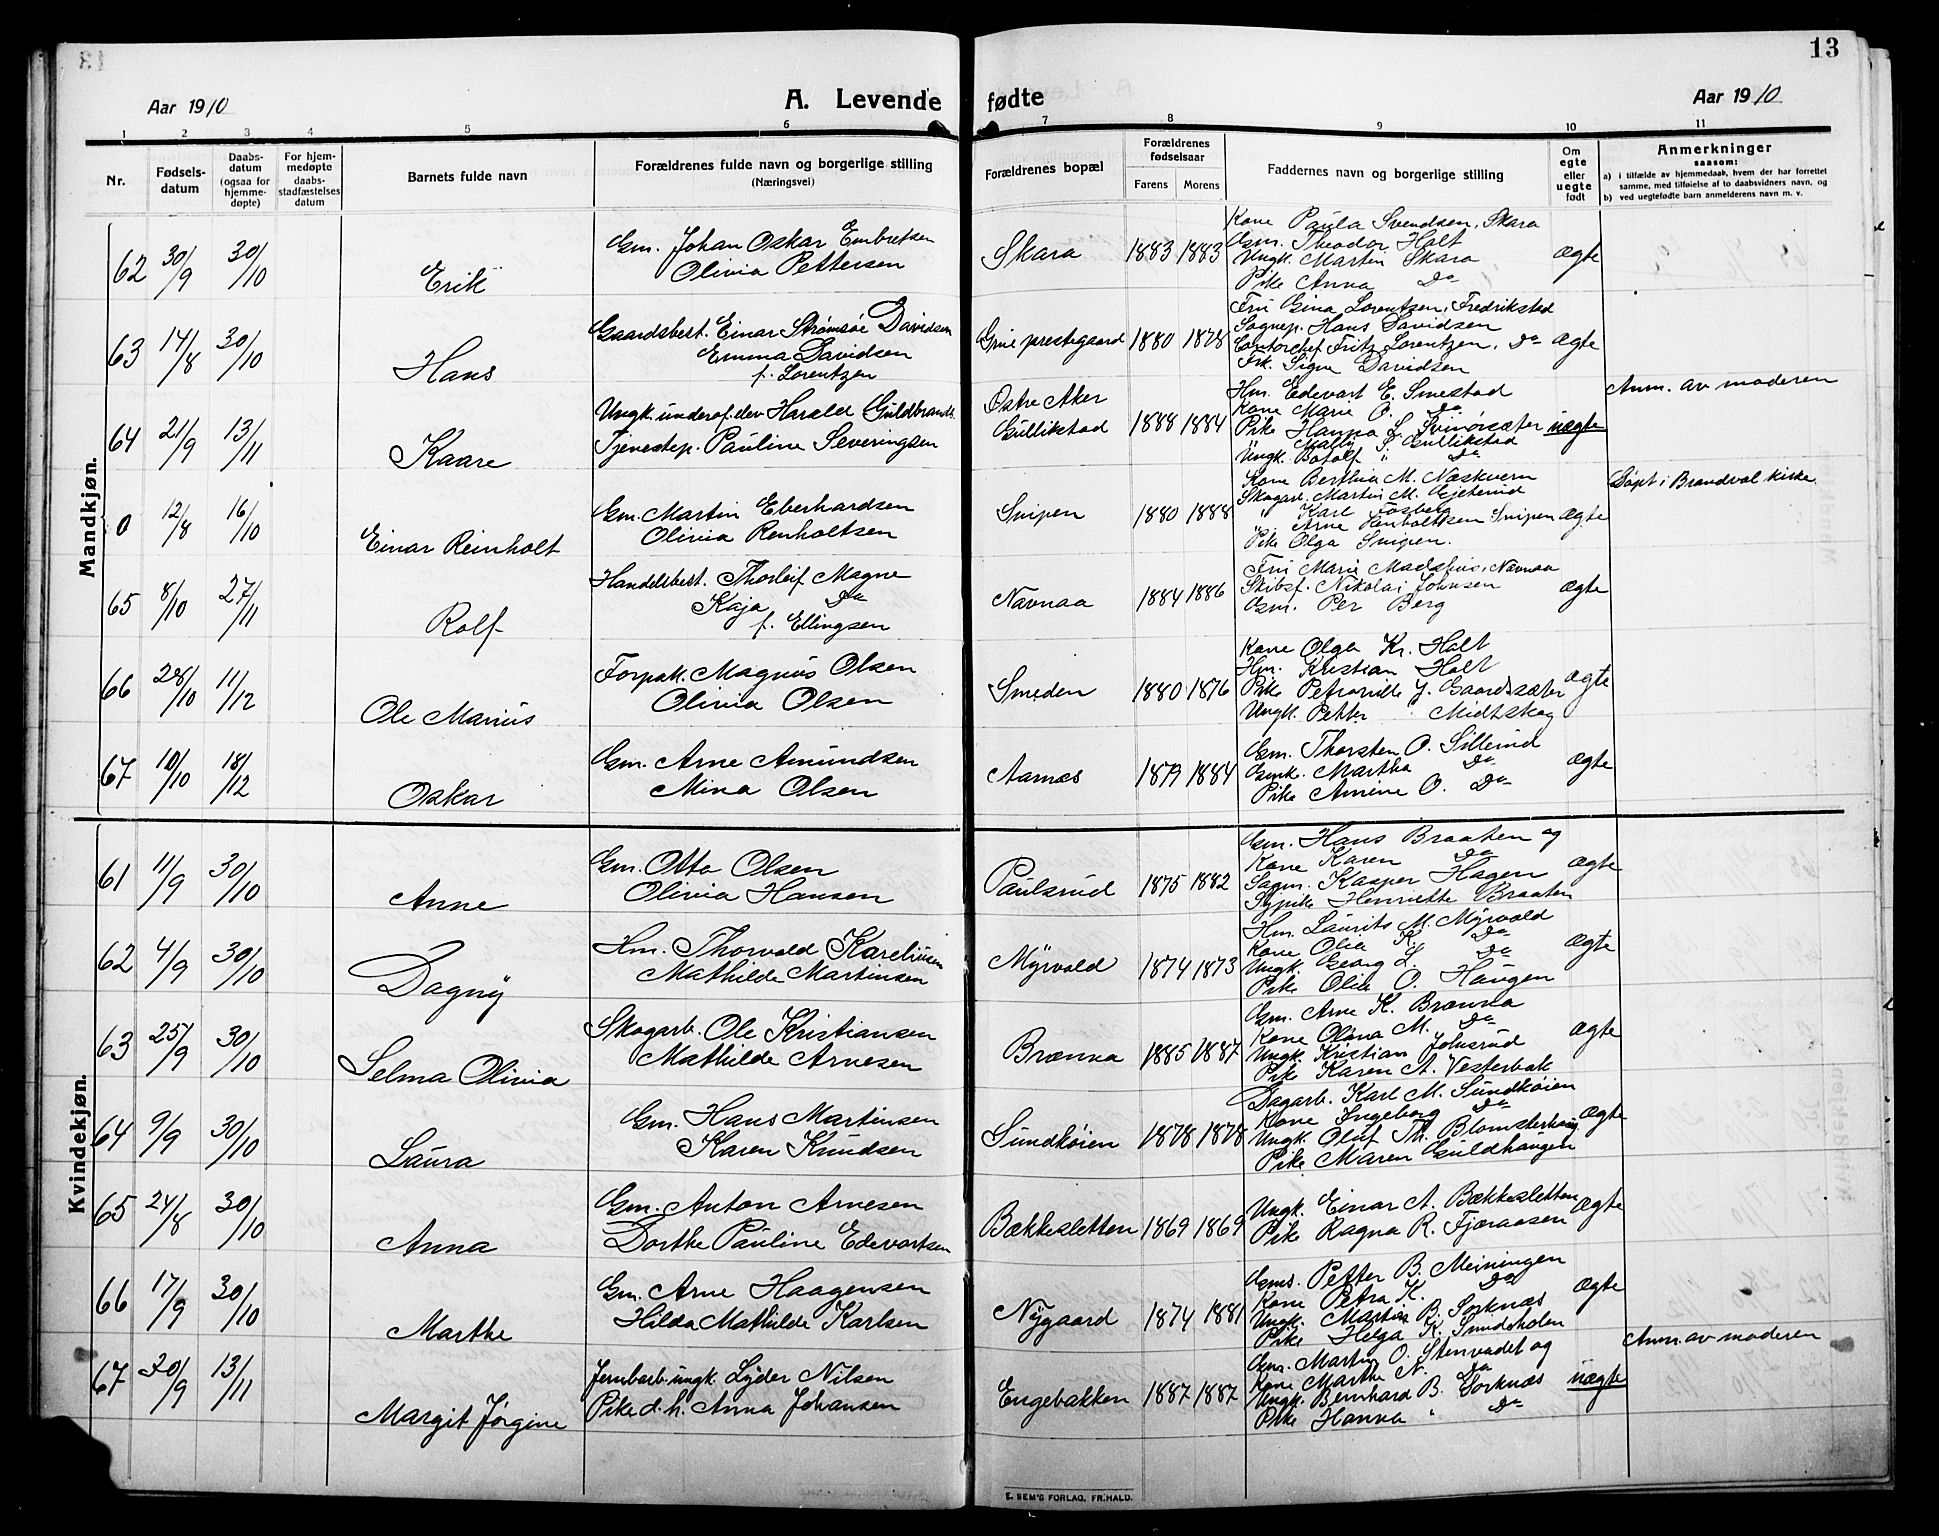 13
Aar 1910
A. Levende fødte
Aar 1910
1 2 3 4 5 6 7 8 9 10 11
Nr.
Fødsels-
datum
Daabs-
datum
(ogsaa for
hjemme-
døpte)
For hjem-
medøpte
daabs-
stadfæstelses
datum
Barnets fulde navn
Forældrenes fulde navn og borgerlige stilling
(Næringsvei)
Forældrenes bopæl
Forældrenes
fødselsaar
Farens Morens
Faddernes navn og borgerlige stilling
Om
egte
eller
uegte
født
Anmerkninger
saasom:
a) i tilfælde av hjemmedaab, hvem der har forrettet
samme, med tilføielse af to daabsvidners navn, og
b) ved uegtefødte barn anmelderens navn m. v.
Mandkjøn.
62 30/9 30/10 Erik
Gm. Johan Oskar Embretsen
Olivia Pettersen
Skara 1883 1883
Kone Paula Svendsen, Skara
Gm. Theodor Holt
Ungk. Martin Skara
Pike Anna Do
Ægte
63 14/8 30/10 Hans
Gaardsbest. Einar Strømsøe Davidsen
Emma Davidsen
f. Lorentzen
Grue prestegaard 1880 1878
Fru Gina Lorentzen, Fredrikstad
Sognep. Hans Davidsen
Contorchef Fritz Lorentzen, Do
Frk. Signe Davidsen
Ægte
64 21/9 13/11 Kaare
Ungk. underof. elev Harald Guldbrands.
Tjenestep. Pauline Severingsen
Østre Aker
Gullikstad 1888 1884
Hm. Edevart E. Smestad
Kone Marie O. Do
Pike Hanna L. Svinørsæter
Mally S. Gullikstad
Ungk. Botolf " Do
uægte
Anm. av moderen
0 12/8 16/10 Einar Reinholt
Gm. Martin Eberhardsen
Olivia Renholtsen
Snipen 1880 1888
Kone Berthia M. Næskvern
Skogarb. Martin M.
" Karl Fosberg
" Arne Renholtsen Snipen
Pike Olga Snipen.
Ægte
Døpt i Brandval kirke
65 8/10 27/11 Rolf
Handelsbest. Thorleif Magne
Kaja Do
f. Ellingsen
Navnaa 1884 1886
Fru Marie Navnaa
Skibsf. Nikolai Johnsen
Gm. Per Berg
Ægte
66 28/10 11/12 Ole Marius
Forpak. Magnus Olsen
Olivia Olsen
Smeden 1880 1876
Kone Olga Kr. Holt
Hm. Kristian Holt
Pike Petronille J. Gaardsæter
Ungk. Petter Midtskog
Ægte
67 10/10 18/12 Oskar
Gm. Arne Amundsen
Mina Olsen
Aarnæs 1879 1884
Gm. Thorsten O. Sillerud
Gmk. Martha Do
Pike Amine O. Do
Ægte
Kvindekjøn.
61 11/9 30/10 Anne
Gm. Otto Olsen
Olivia Hansen
Paulsrud 1875 1882
Gm. Hans Braaten og
Kone Karen Do
Sagm. Kasper Hagen
Sypike Henriette Braaten
Ægte
62 4/9 30/10 Dagny
Hm. Thorvald Karelinsen
Mathilde Martinsen
Myrvold 1874 1873
Hm. Laurits M. Myrvold
Kone Olia K. Do
Ungk. Georg L. Do
Pike Olia O. Haugen
Ægte
63 25/9 30/10 Selma Olivia
Skogarb. Ole Kristiansen
Mathilde Arnesen
Brænna 1885 1887
Gm. Arne K. Brænna
Kone Olava M. Do
Ungk. Kristian Johnsrud
Pike Karen A. Vesterbak
Ægte
64 9/9 30/10 Laura
Gm. Hans Martinsen
Karen Knudsen
Sundkøien 1878 1878
Dagarb. Karl M. Sundkøien
Kone Ingeborg Do
Ungk. Oluf Th. Blomsterhaug
Pike Maren Guldhaugen
Ægte
65 24/8 30/10 Anna
Gm. Anton Arnesen
Dorthe Pauline Edevartsen
Bækkesletten 1869 1869
Ungk. Einar A. Bækkesletten
Pike Ragna R. Fjæraasen
Ægte
66 17/9 30/10 Marthe
Gm. Arne Haagensen
Hilda Mathilde Karlsen
Nygaard 1874 1881
Gms. Petter B. Meiningen
Kone Petra K. Do
Ungk. Martin B. Sorknæs
Pike Helga K. Smidsholen
Ægte
67 20/9 13/11 Margit Jørgine
Jernbarb. ungk. Lyder Nilsen
Pike d. h. Anna Johansen
Engebakken 1887 1887
Gm. Martin O. Stenvadet og
Kone Marthe N. Do
Ungk. Bernhard B. Sorknæs
Pike Hanna " Do
uægte
Anm. av moderen
E. SEM'S FORLAG, FR.HALD.